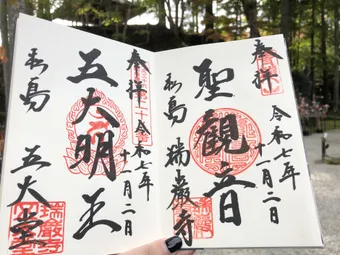 奉拝
令和七年
十一月二日
聖觀音
松島
瑞巖寺
奉拝
令和七年
十一月二日
五大明王
松島
五大堂
瑞巖寺